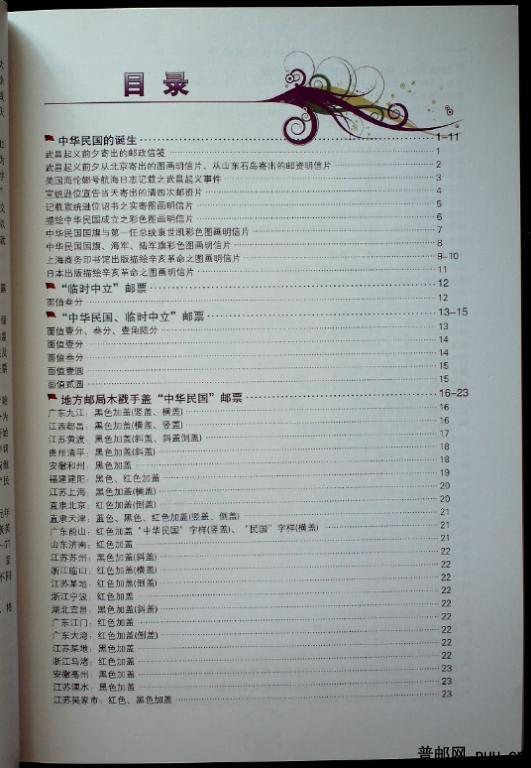 目录
中华民国的诞生 1-11
武昌起义前夕寄出的邮政信笺 1
武昌起义前夕从北京寄出的图画明信片、从山东石岛寄出的邮资明信片 2
美国海伦娜号航海日志记载之武昌起义事件 3
宣统逊位宣告当天寄出的清四次邮资片 4
记载宣统逊位诏书之实寄图画明信片 5
描绘中华民国成立之彩色图画明信片 6
中华民国国旗与第一任总统袁世凯彩色图画明信片 7
中华民国国旗、海军、陆军旗彩色图画明信片 8
上海商务印书馆出版描绘辛亥革命之图画明信片 9-10
日本出版描绘辛亥革命之图画明信片 11
“临时中立”邮票 12
面值叁分 12
“中华民国、临时中立”邮票 13-15
面值壹分、叁分、壹角陆分 13
面值壹分 14
面值叁分 14
面值壹圆 15
面值贰圆 15
地方邮局木戳手盖“中华民国”邮票 16-23
广东九江：黑色加盖(竖盖、横盖) 16
江西都昌：黑色加盖(横盖、竖盖) 16
江苏黄渡：黑色加盖(斜盖、斜盖倒盖) 17
贵州清平：黑色加盖(斜盖) 18
安徽和州：黑色加盖 18
福建建阳：黑色、红色加盖 19
江苏上海：黑色加盖(横盖) 20
直隶北京：红色加盖(倒盖) 20
直隶天津：蓝色、黑色、红色加盖(竖盖、倒盖) 21
广东前山：红色加盖“中华民国”字样(竖盖)、“民国”字样(横盖) 21
山东济南：红色加盖 21
江苏苏州：黑色加盖(斜盖) 22
浙江临山：红色加盖(横盖) 22
江苏某地：黑色加盖(倒盖) 22
浙江宁波：红色加盖 22
湖北宜昌：黑色加盖(斜盖) 22
广东江门：红色加盖 22
广东大湾：红色加盖(倒盖) 22
江苏某地：黑色加盖 22
浙江马湾：红色加盖 22
安徽亳州：黑色加盖 23
江苏溧水：黑色加盖 23
江苏吴家市：红色、黑色加盖 23
普邮网